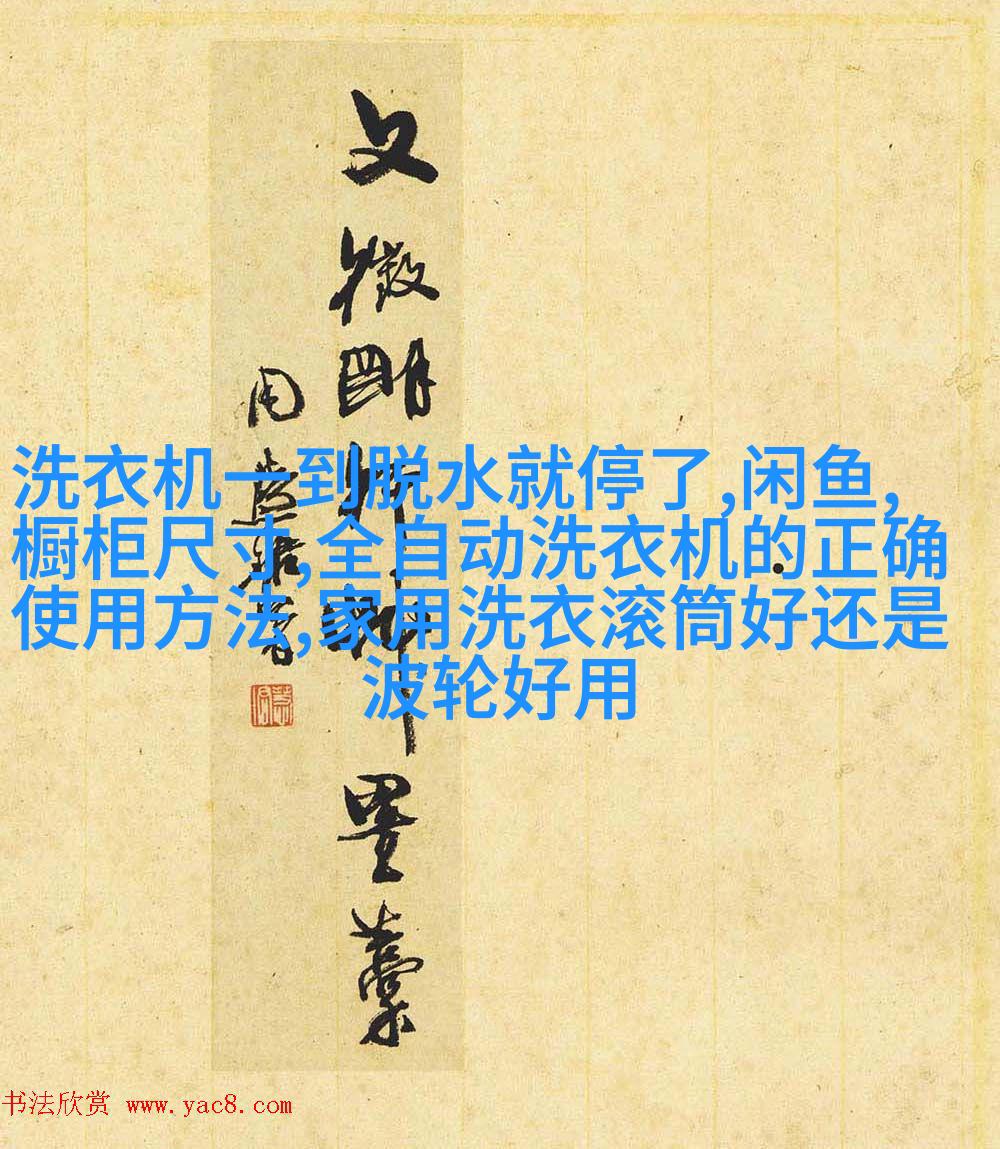 洗衣机一到脱水就停了,闲鱼,
橱柜尺寸,全自动洗衣机的正确
使用方法,家用洗衣滚筒好还是
波轮好用
文徵明师
墨藁
书法欣赏 www.yac8.com